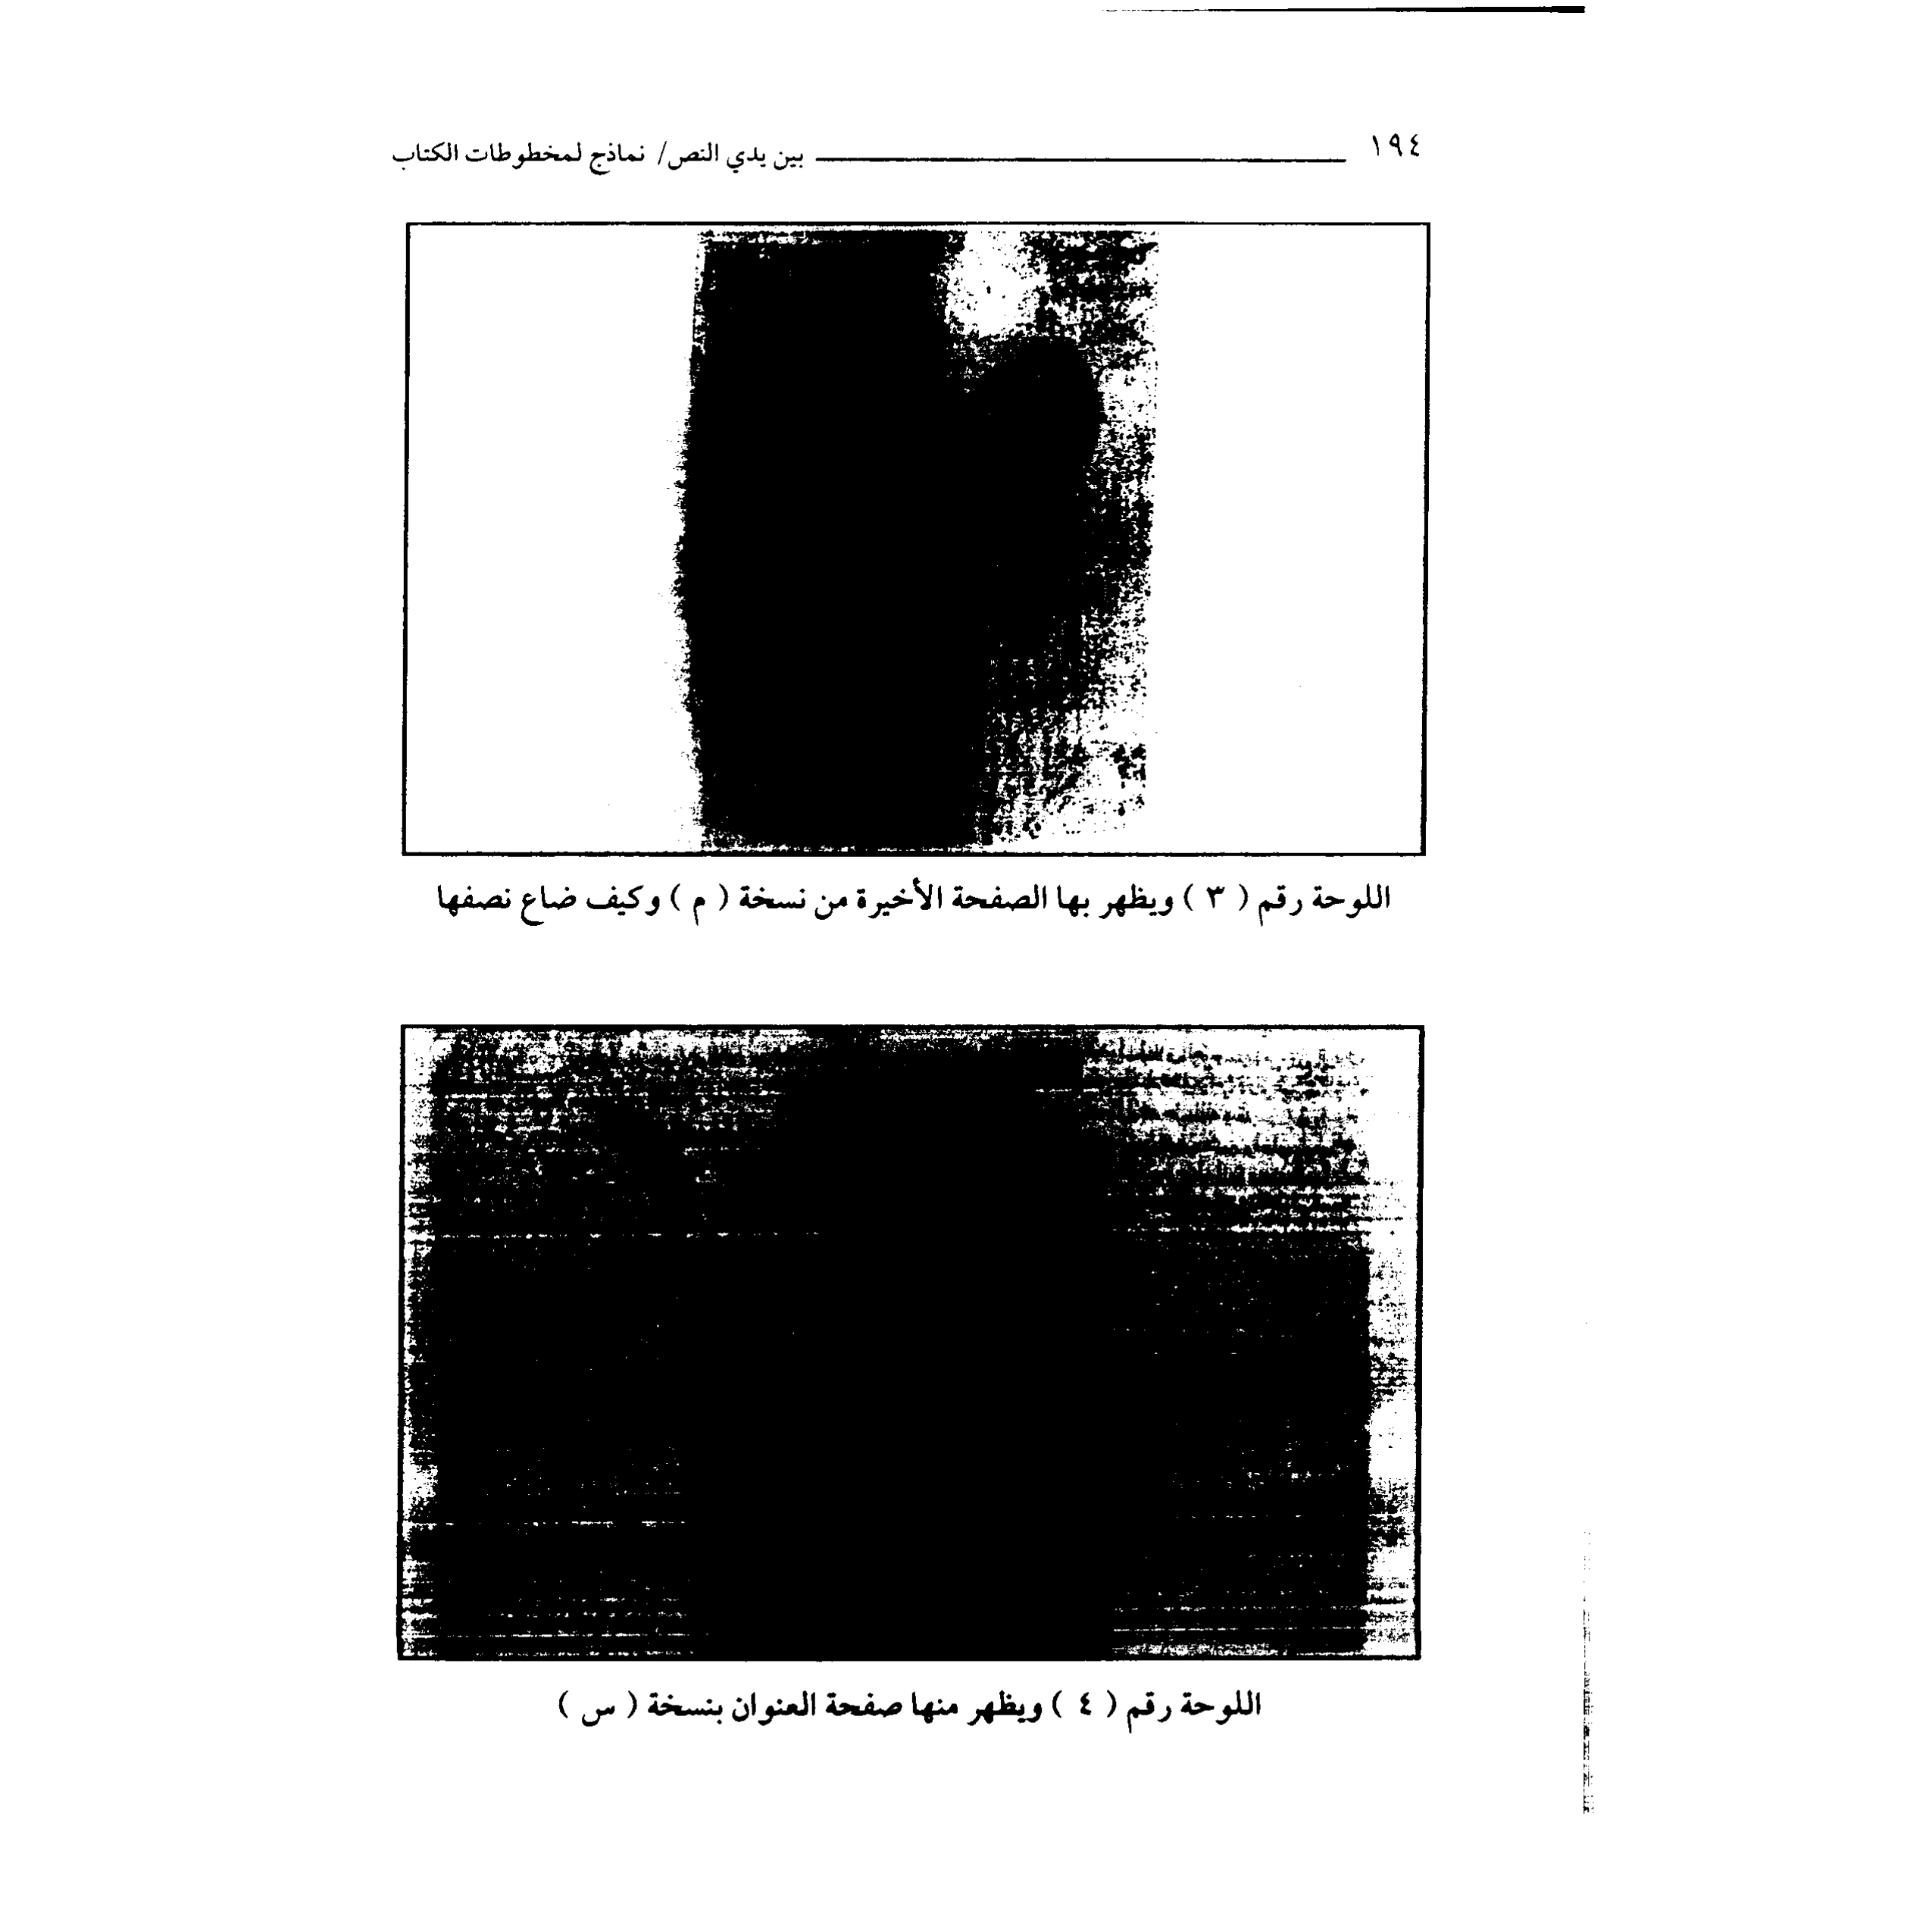 ١٩٤ بين يدي النص/ نماذج لمخطوطات الكتاب
اللوحة رقم ( ٣ ) ويظهر بها الصفحة الأخيرة من نسخة ( م ) وكيف ضاع نصفها
اللوحة رقم ( ٤ ) ويظهر منها صفحة العنوان بنسخة ( س )